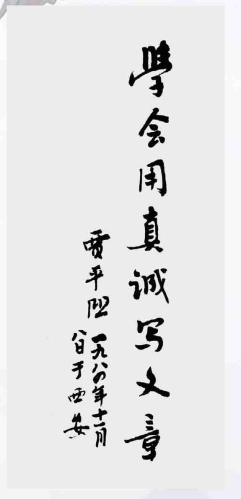 學会用真诚写文章
贾平凹
一九八八年十一月
八日于西安